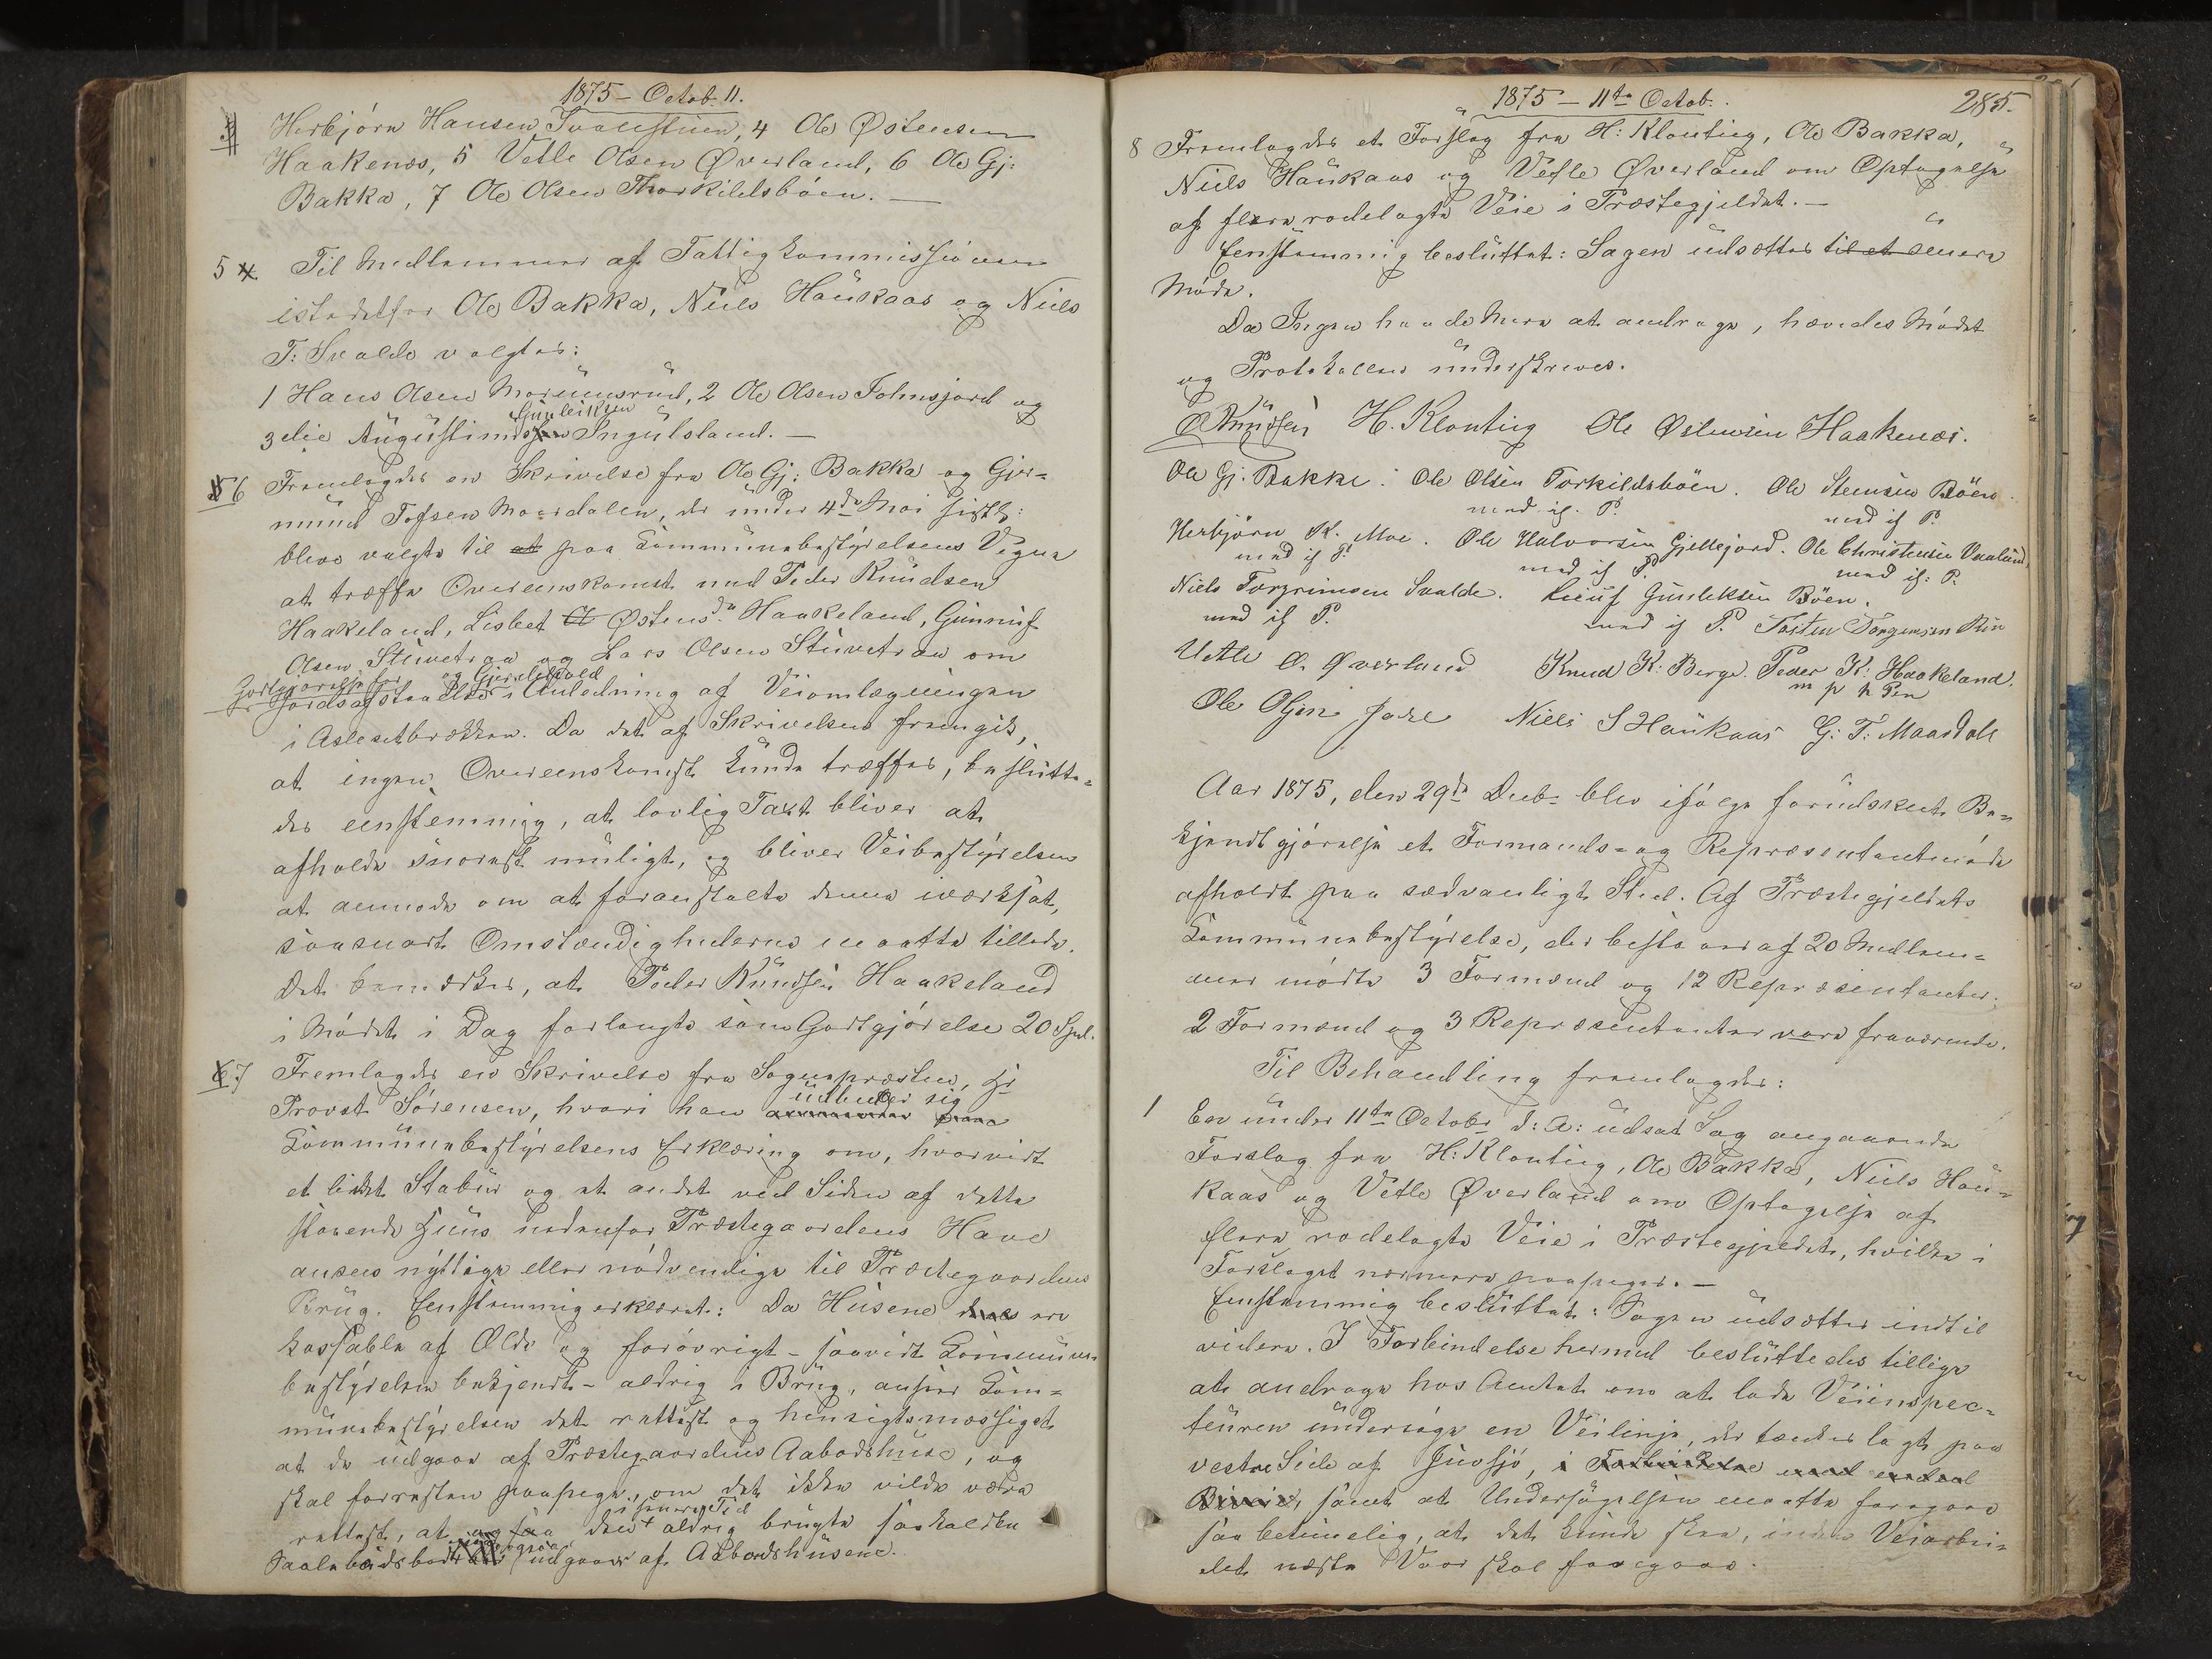 1875 – Octob. 11.
Herbjörn Hansen Svalestuen, 4 Ole Østensen
Haakenæs, 5 Vetle Olsen Øverland, 6 Ole Gj:
Bakka, 7 Ole Olsen Thorkildsböen. —
5 Til Medlemmer af Fattigkommissionen
istedetfor Ole Bakka, Niels Haükaas og Niels
T: Svalde valgtes:
1 Hans Olsen Mærunsrud, 2 Ole Olsen Folnsjord og
Gunleiksen
3die Augustinus Ingulsland. —
6 Fremlagdes en Skrivelse fra Ole Gj: Bakka og Gjer=
mund Tofsen Maardalen, der under 4de Mai sidstl:
bleve valgte til at paa Kommunebestyrelsens Vegne
at træffe Overeenskomst med Peder Knudsen
Haakeland, Lisbet Østensdr Haakeland, Gunnuf
Olsen Stuvetraa og Lars Olsen Stuvetraa om
Godtgjørelse for og Gjerdehold
Jordsafstaaelse i Anledning af Veiomlægningen
i Aslesetbrækken. Da det af Skrivelsen fremgik,
at ingen Overeenskomst kunde træffes, beslutte=
des eenstemmig, at lovlig Taxt bliver at
afholde snarest muligt, og bliver Veibestyrelsen
at anmode om at foranstalte denne iværksat,
saasnart Omstændighederne maatte tillade.
Det bemærkes, at Peder Knudsen Haakeland
i Mödet i Dag forlangte som Godtgjörelse 20 Spd.
7 Fremlagdes en Skrivelse fra Sognepræsten, Hr
udbeder sig
Provst Sörensen, hvori han
Kommunebestyrelsens Erklæring om, hvorvidt
et lidet Stabur og et andet ved Siden af dette
staaende Huus nedenfor Præstegaardens Have
ansees nyttige eller nödvendige til Præstegaardens
Brug. Eenstemmig erklæret: Da Husene ere
kassable af Ælde og forövrigt – saavidt Kommune
bestyrelsen bekjendt – aldrig i Brug, anseer Kom=
munebestyrelsen det rettest og hensigtsmæssigst
at de udgaar af Præstegaardens Aabodshuse, og
skal forresten paapege, om det ikke vilde være
i senere Tid
rettest, at ogsaa den aldrig brugte saakaldte
udgaar af Aabodshusene.
1875 – 11te Octob.
285.
8 Fremlagdes et Forslag fra H: Kloutieg, Ole Bakka,
Niels Haükaas og Vetle Øverland om Optagelse
af flere rodelagte Veie i Præstegjeldet. —
Eenstemmig besluttet: Sagen udsættes til et senere
Möde.
Da Ingen havde Mere at andrage, hævedes Mödet
og Protokollen underskreves.
O Knudsen H. Kloutieg Ole Østensen Haakenæs.
Ole Gj. Bakke. Ole Olsen Torkildsböen. Ole Steensen Böen.
med if. P. med if P.
Herbjörn K. Moe. Ole Halvorsen Gjellejord. Ole Christensen Vaaland
med if P. med if P. med if: P.
Niels Torgrimsen Svalde. Leiuf Gunleksen Böen.
med if P. med if P. Tosten Torgimsen Rui
Vetle O. Øverland Knud K: Berge. Peder K: Haakeland.
m p h Pen
Ole Olsen Niels S Haükaas G: T: Maardale
Aar 1875, den 29de Decb. blev ifölge forudskeet Be=
kjendtgjörelse et Formands= og Repræsentantmöde
afholdt paa sædvanligt Sted. Af Præstegjeldets
Kommunebestyrelse, der bestaar af 20 Medlem=
mer mödte 3 Formænd og 12 Repræsentanter.
2 Formænd og 3 Repræsentanter vare fraværende.
Til Behandling fremlagdes:
1 En under 11te Octobr d: A: udsat Sag angaaende
Forslag fra H: Kloutieg, Ole Bakka, Niels Hau=
kaas og Vetle Øverland om Optagelse af
flere rodelagte Veie i Præstegjeldet, hvilke i
Forslaget nærmere paapeges. —
Eenstemmig besluttet: Sagen udsættes indtil
videre. I Forbindelse hermed besluttedes tillige
at andrage hos Amtet om at lade Veiinspec=
teuren undersöge en Veilinje, der tænkes lagt paa
vestre Side af Juvsjö, i Forbindelse med
samt at Undersögelsen maatte foregaae
saa betimelig, at det kunde skee, inden Veiarbei=
det næste Vaar skal foregaae.